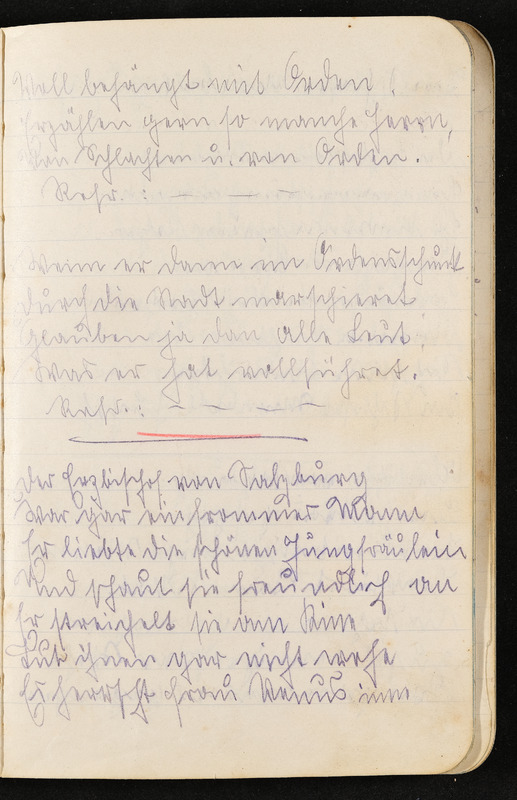 Voll behängt mit Orden.
Erzählen gern so manche Herrn,
Von Schlachten u. von Orden.
Refr.: — — —
Wenn er dann im Ordensschmuck
Durch die Stadt marschieret
Glauben ja dan alle Leut
Was er hat vollführet.
Refr.: — — — —
Der Erzbischof von Salzburg
War gar ein frommer Mann
Er liebte die schönen Jungfräulein
Und schaut sie freundlich an
Er streichelt sie am Kinn
Tut ihnen gar nicht wehe
Es herrscht Frau Venus imm